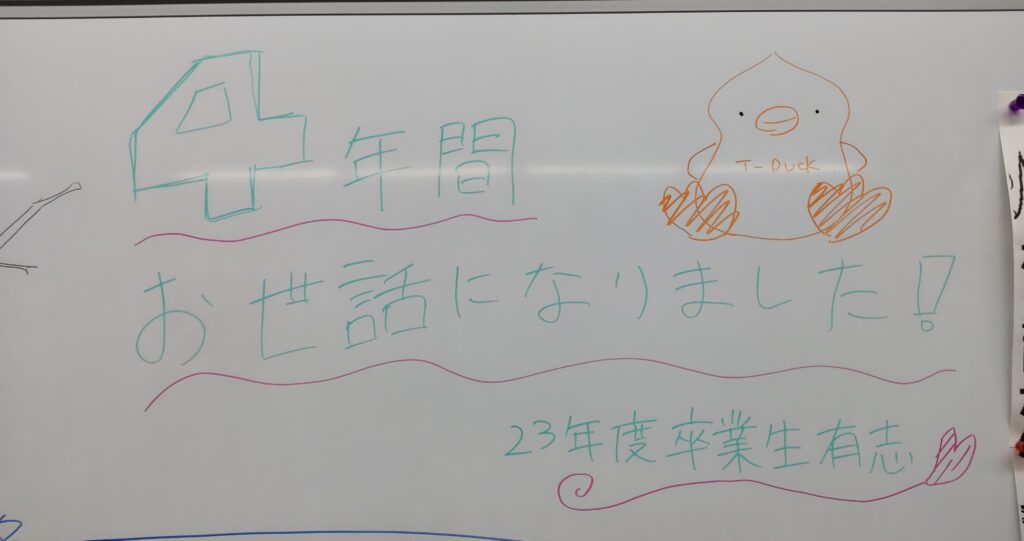 4年間
T-Duck
お世話になりました!
23年度卒業生有志